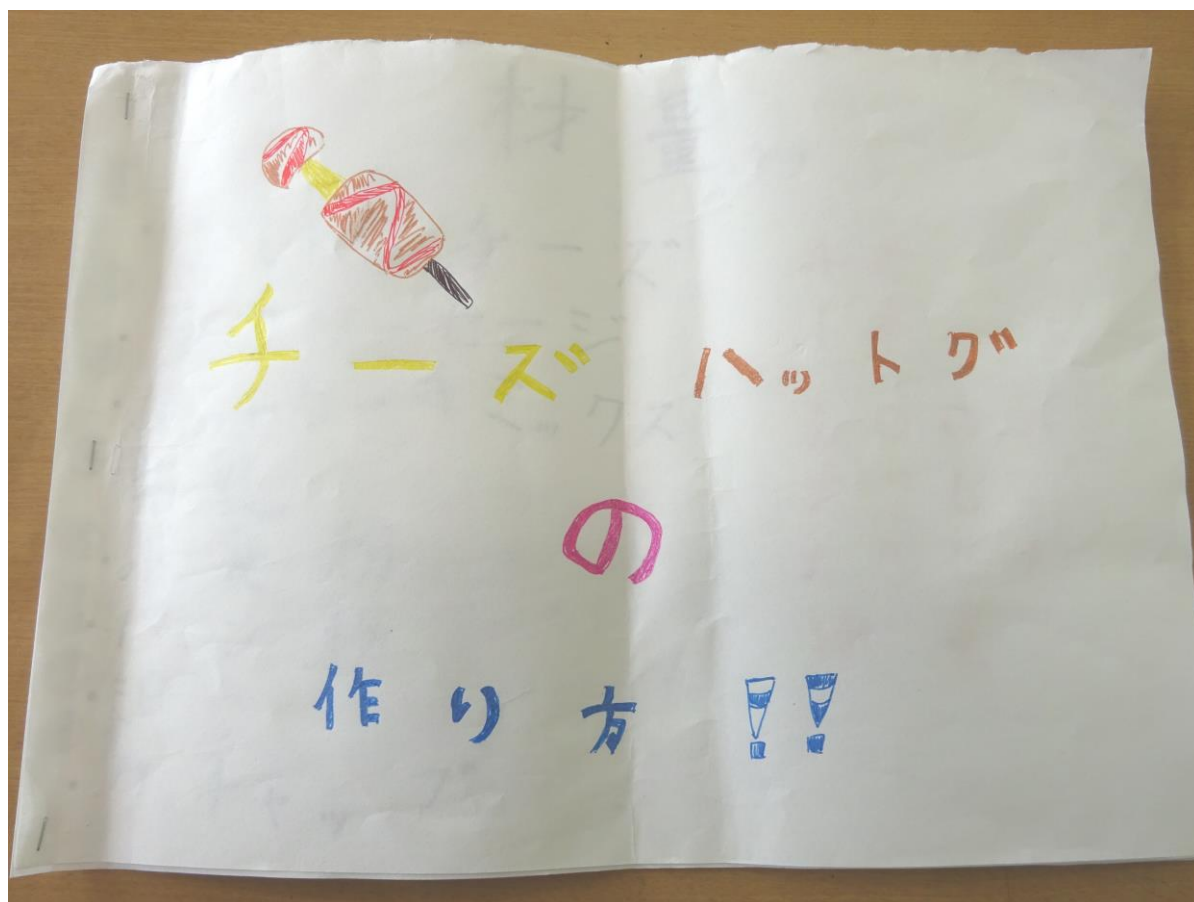 チーズ ハットグ
の
作り方!!